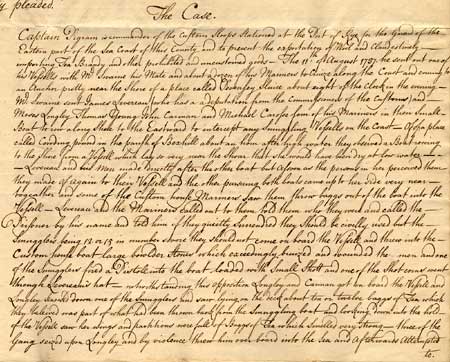 y pleaded.
The Case.
Captain Pigram is commander of the Custom Sloops Stationed at the Port of Rye for the Guard of the
Eastern part of the Sea Coast of this County and to prevent the exportation of Wool and Clandestinely
importing Tea Brandy and other prohibited and uncustomed goods - The 11th of August 1737 he sent out one of
his Vessells with Mr Swaine his Mate and about a dozen of his Mariners to Cruize along the Coast and coming to
an Anchor pretty near the Shore of a place called Sluice about eight of the clock in the evening -
Mr Swaine sent James Lovereau (who has a deputation from the commissioners of the Customs) and
Moses Langley Thomas Young John Carman and Michael of his Mariners in their Small
Boat to row along Shore to the Eastward to intercept any Smuggling Vessells on the Coast - a place
called pound in the parish of Bexhill about an hour after high water they observed a Boat coming
to the Shore from a Vessell which lay so very near the Shore that she would have been dry at low water -
- Lovereau and his Men made directly after the other boat but as soon as the persons in her perceived them
they made of again to their Vessell and the other pursuing both boats came up to her side very near
together and some of the Custom house Mariners saw them throw baggs out of the boat into the
Vessell - Lovereau and the Mariners called out to them told them who they were and called the
Prisoner by his name and told him if they quietly Surrendred they Should be civilly used but the
Smugglers being 12 or 13 in number swore they should not come on board the Vessell and threw into the
Custom house boat large boulder Stones which exceedingly bruized and wounded the men and one
of the Smugglers fired a Pistoll into the boat loaded with Small Shott and one of the Shot went
through Lovereau's hat - notwithstanding this opposition Langley and Carman got on board the Vessell and
Langley knocked down one of the Smugglers and saw lying on the deck about ten or twelve baggs of Tea which
they believed was part of what had been thrown back from the Smuggling boat and looking down into the hold
of the Vessell saw her and were full of Baggs of Tea which Smelled very Strong - three of the
Gang seized upon Langley and by violence threw him over board into the Sea and afterwards Attempted
to.